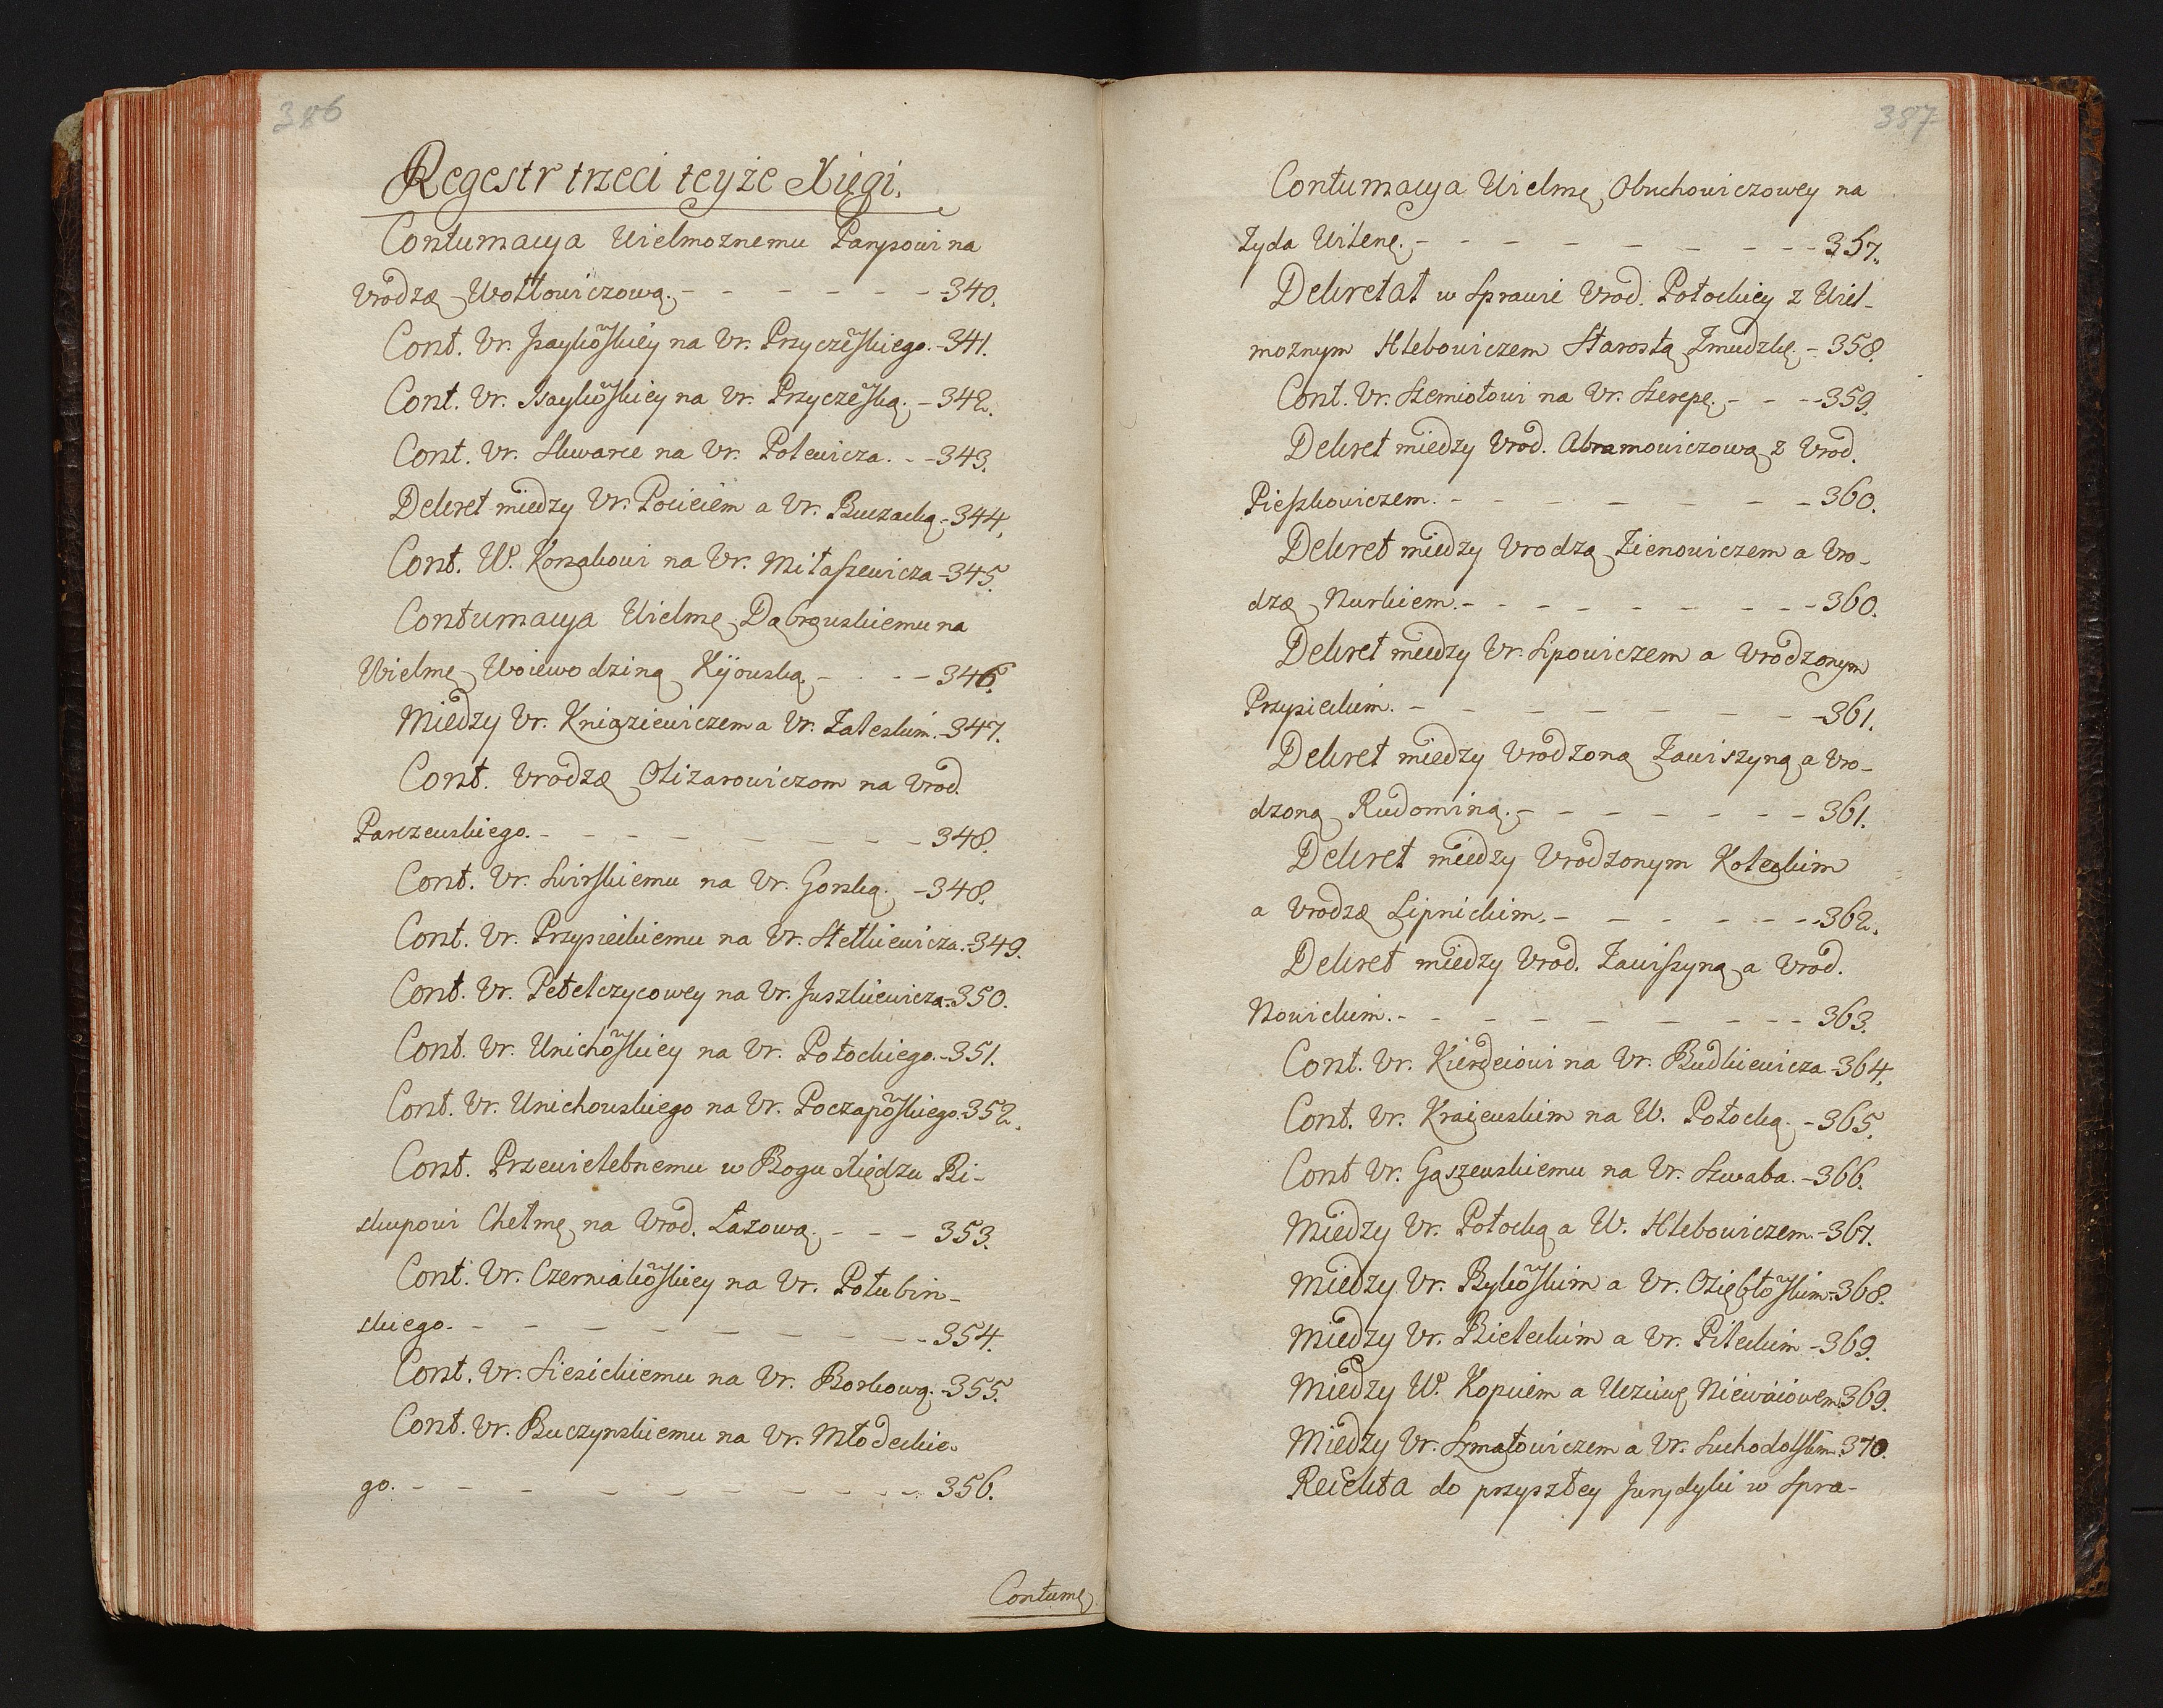 386
Regestr trzeci teyże Xięgi.
Contumacya Wielmożnemu Parysowi na
Vrodzę Wołłowiczową. - - - - - - - 340.
Cont. Vr. Isaykoskiey na Vr. Przyczeskiego. - 341.
Cont. Vr. Isaykoskiey na Vr. Przyczeską. - 342.
Cont. Vr. Skwarce na Vr. Polewicza. - - 343.
Dekret miedzy Vr. Pocieiem a Vr. Buczacką - 344.
Cont. W. Korsakowi na Vr. Miłaszewicza - 345.
Contumacya Wielmę Dąbrąwskiemu na
Wielmę Woiewodziną Kijowską. - - - - 346.
Miedzy Vr. Kniaziewiczem a Vr. Zaleskim. - 347.
Cont. Vrodzę Olizarowiczom na Vrod.
Parczewskiego. - - - - - - - - 348.
Cont. Vr. Swirskiemu na Vr. Gorską. - 348.
Cont. Vr. Przysieckiemu na Vr. Stetkiewicza. - 349.
Cont. Vr. Petelczycowey na Vr. Juszkiewicza - 350.
Cont. Vr. Unichoskiey na Vr. Potockiego. - 351.
Cont. Vr. Unichowskiego na Vr. Poczaposkiego. 352.
Cont. Przewielebnemu w Bogu Xiędzu Bi-
skupowi Chełmę na Vrod. Łazową. - - - 353.
Cont. Vr. Czerniakoskiey na Vr. Połubin-
skiego. - - - - - - - - - 354.
Cont. Vr. Siesickiemu na Vr. Borkową. - 355.
Cont. Vr. Buczynskiemu na Vr. Młodeckie-
go. - - - - - - - - - - 356.
Contumę
387
Contumacya Wielmę Obuchowiczowey na
Żyda Wilenę. - - - - - - - - - 357.
Dekretat w Sprawie Vrod. Potockiey z Wiel-
możnym Hlebowiczem Starostą Żmudzkę. - 358.
Cont. Vr. Szemiotowi na Vr. Szerepę. - - - 359.
Dekret miedzy Vrod. Abramowiczową z Vrod.
Pieszkowiczem. - - - - - - - 360.
Dekret miedzy Vrodzą Zienowiczem a Vro-
dzę Nurkiem. - - - - - - - - 360.
Dekret miedzy Vr. Lipowiczem a Vrodzonym
Przysieckim. - - - - - - - - - 361.
Dekret miedzy Vrodzoną Zawiszyną a Vro-
dzoną Rudominą. - - - - - - - 361.
Dekret miedzy Vrodzonym Koteckim
a Vrodzę Lipnickim. - - - - - - 362.
Dekret miedzy Vrod. Zawiszyną a Vrod.
Nowickim. - - - - - - - - - 363.
Cont. Vr. Kierdeiowi na Vr. Budkiewicza - 364.
Cont. Vr. Kraiewskim na W. Potocką. - 365.
Cont Vr. Gąszewskiemu na Vr. Szwaba. - 366.
Miedzy Vr. Potocką a W. Hlebowiczem. - 367.
Miedzy Vr. Bykoskim a Vr. Oziębłoskim. - 368.
Miedzy Vr. Bieleckim a Vr. Pileckim - 369.
Miedzy W. Kopciem a Uczciwę Niewaiowem. 369.
Miedzy Vr. Szmatowiczem a Vr. Suchodolskim. 370.
Reiekta do przyszłey Jurydyki w Spra-